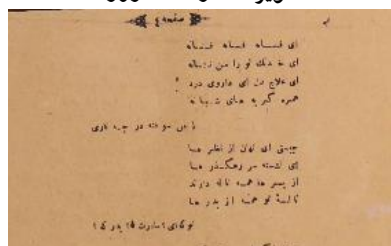 صفحه ٤
ای فسانه فسانه فسانه
ای خدنگ تو را من نشانه
ای علاج دل ای داروی درد
همره گریه های شبانه
با من سوخته در چه کاری
چیستی ای نهان از نظر ها
ای نشسته سر رهگذر ها
از پسر ها همه ناله دارند
ناله تو همه از پدر ها
تو که ای؟ مادرت که؟ پدر که؟